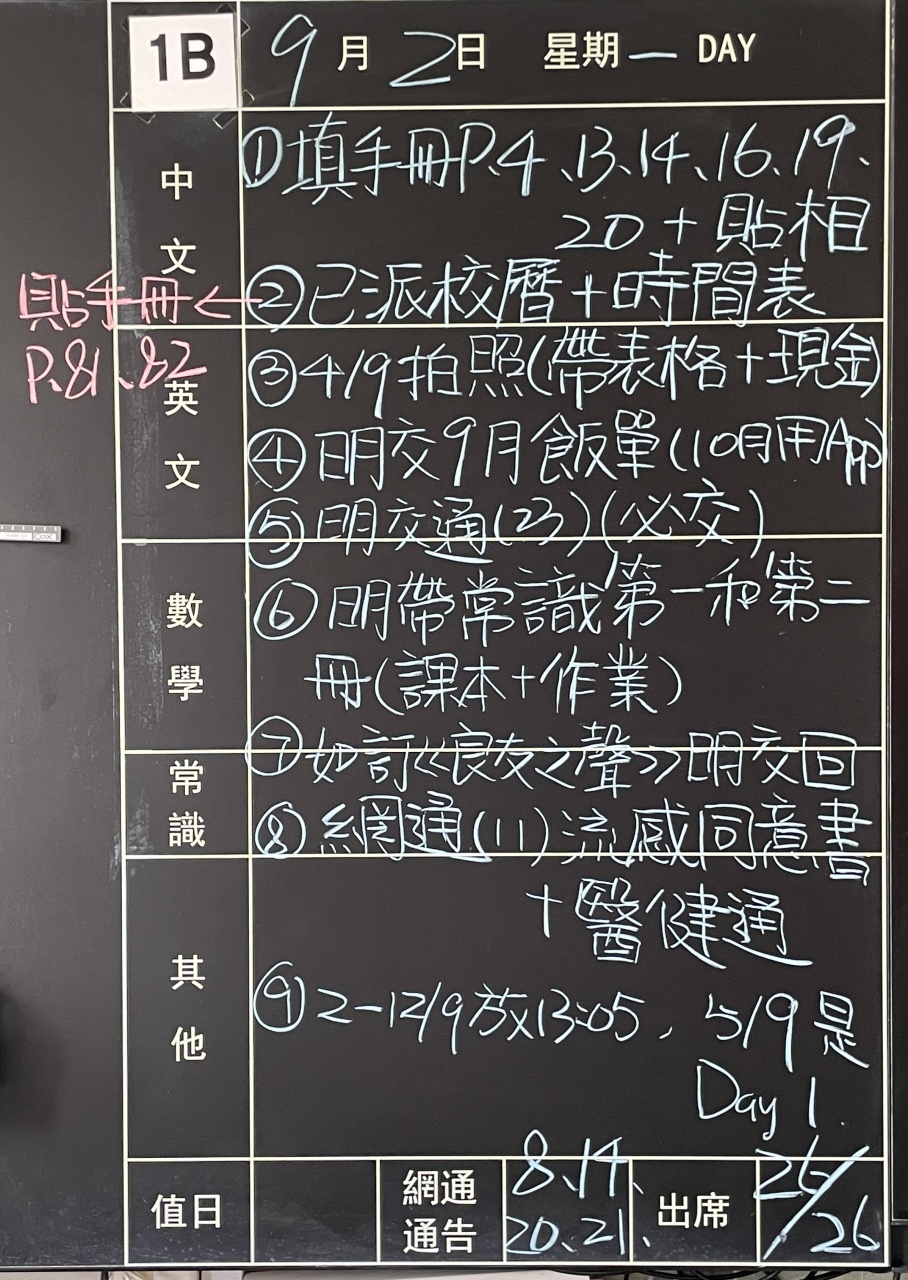 1B 9月2日 星期一 DAY
中文
①填手冊P.4、13、14、16、19、
20+貼相
②已派校曆+時間表
貼手冊←
P.81、82
英文
③4/9拍照(帶表格+現金)
④明交9月飯單(10月用App)
⑤明交通(23)(必交)
數學
⑥明帶常識第一和第二
冊(課本+作業)
⑦如訂《良友之聲》明交回
常識
⑧網通(11)流感同意書
+醫健通
其他
⑨2-12/9放13:05,5/9是
Day 1.
值日
網通
通告
8、14、
20、21、
出席
26